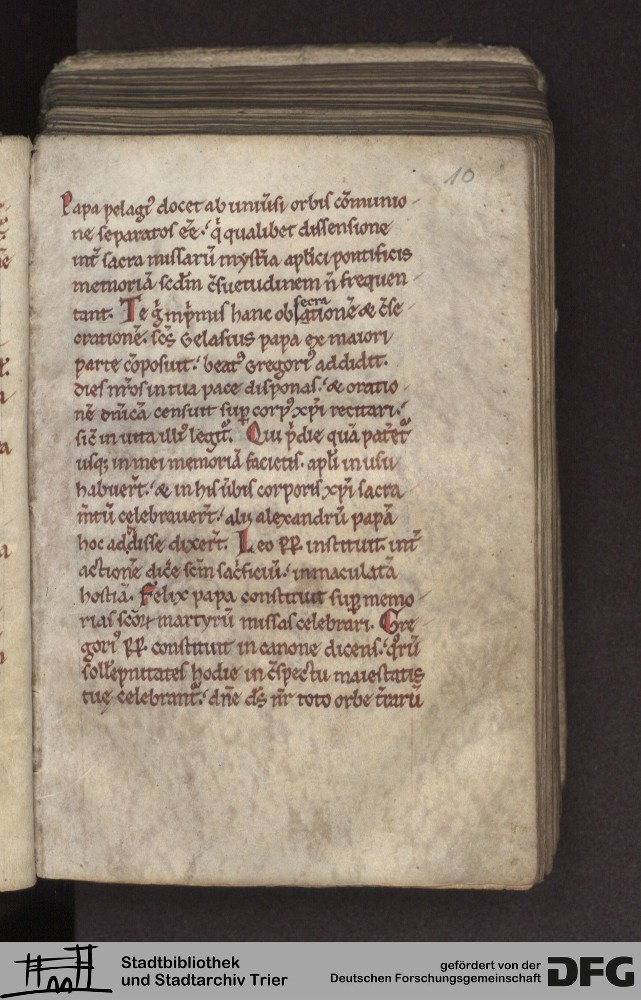 10
Papa pelagiꝰ docet ab uniũsi orbis cõmunio-
ne separatos eẽ. q̇ qualibet dissensione
int̃ sacra missarũ mystia apl̃ici pontificis
memoriã scd̃m c̃suetudinem ñ frequen-
tant. Te g̃ inp̃mis hanc obsecrationẽ & c̃se-
crationẽ. sc̃s Gelasius papa ex maiori
parte cõposuit. beatꝰ Gregoriꝰ addidit.
dies nr̃os in tua pace disponas. & oratio-
nẽ dñicã censuit suꝑ corpꝰ xp̃i recitari.
sic̃ in uita illiꝰ legit᷑. Qui p̃die quã paret᷑
usq; in mei memoriã facietis. apl̃i in usu
habuer̃t. & in his ũbis corporis xp̃i sacra
m̃tũ celebrauer̃t. alii alexandrũ papã
hoc addisse dixer̃t. Leo PP. instituit int̃
actionẽ dice sc̃m sac̃ficiũ. inmaculatã
hostiã. Felix papa constituit suꝑ memo-
rias sc̃oꝝ martyrũ missas celebrari. Gre
goriꝰ PP. constituit in canone dicens. qr̃ũ
sollẽpnitates hodie in c̃spectu maiestatis
tuę celebrant᷑. dñe ds̃ nr̃ toto orbe t̃rarũ
Stadtbibliothek
und Stadtarchiv Trier
gefördert von der
Deutschen Forschungsgemeinschaft
DFG